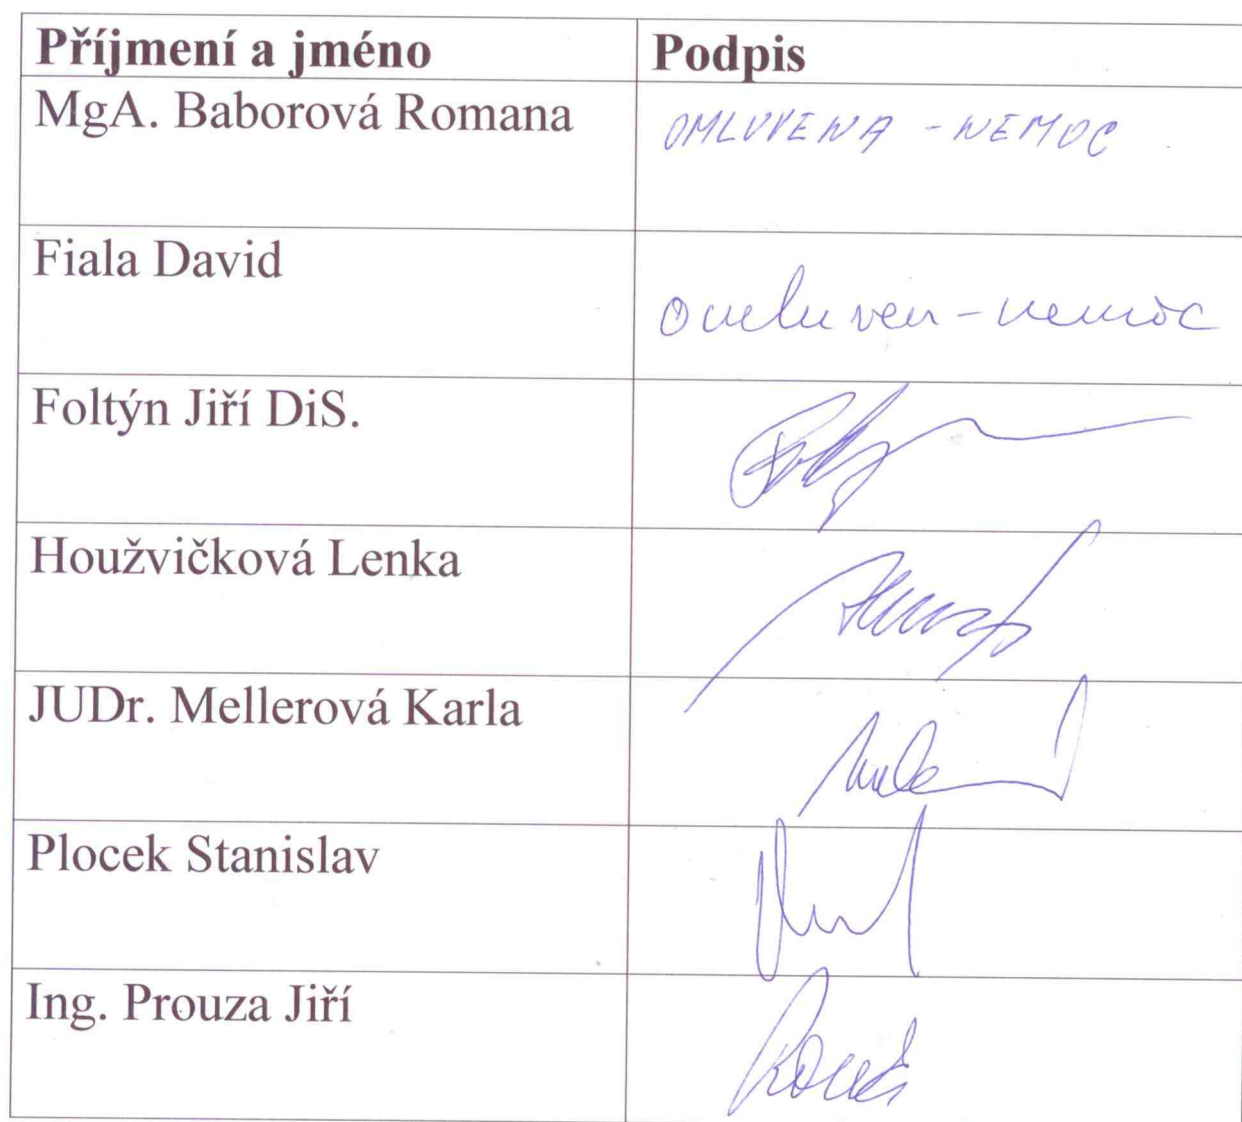 Příjmení a jméno Podpis
MgA. Baborová Romana OMLUVENA - NEMOC
Fiala David omluven - nemoc
Foltýn Jiří DiS.
Houžvičková Lenka
JUDr. Mellerová Karla
Plocek Stanislav
Ing. Prouza Jiří